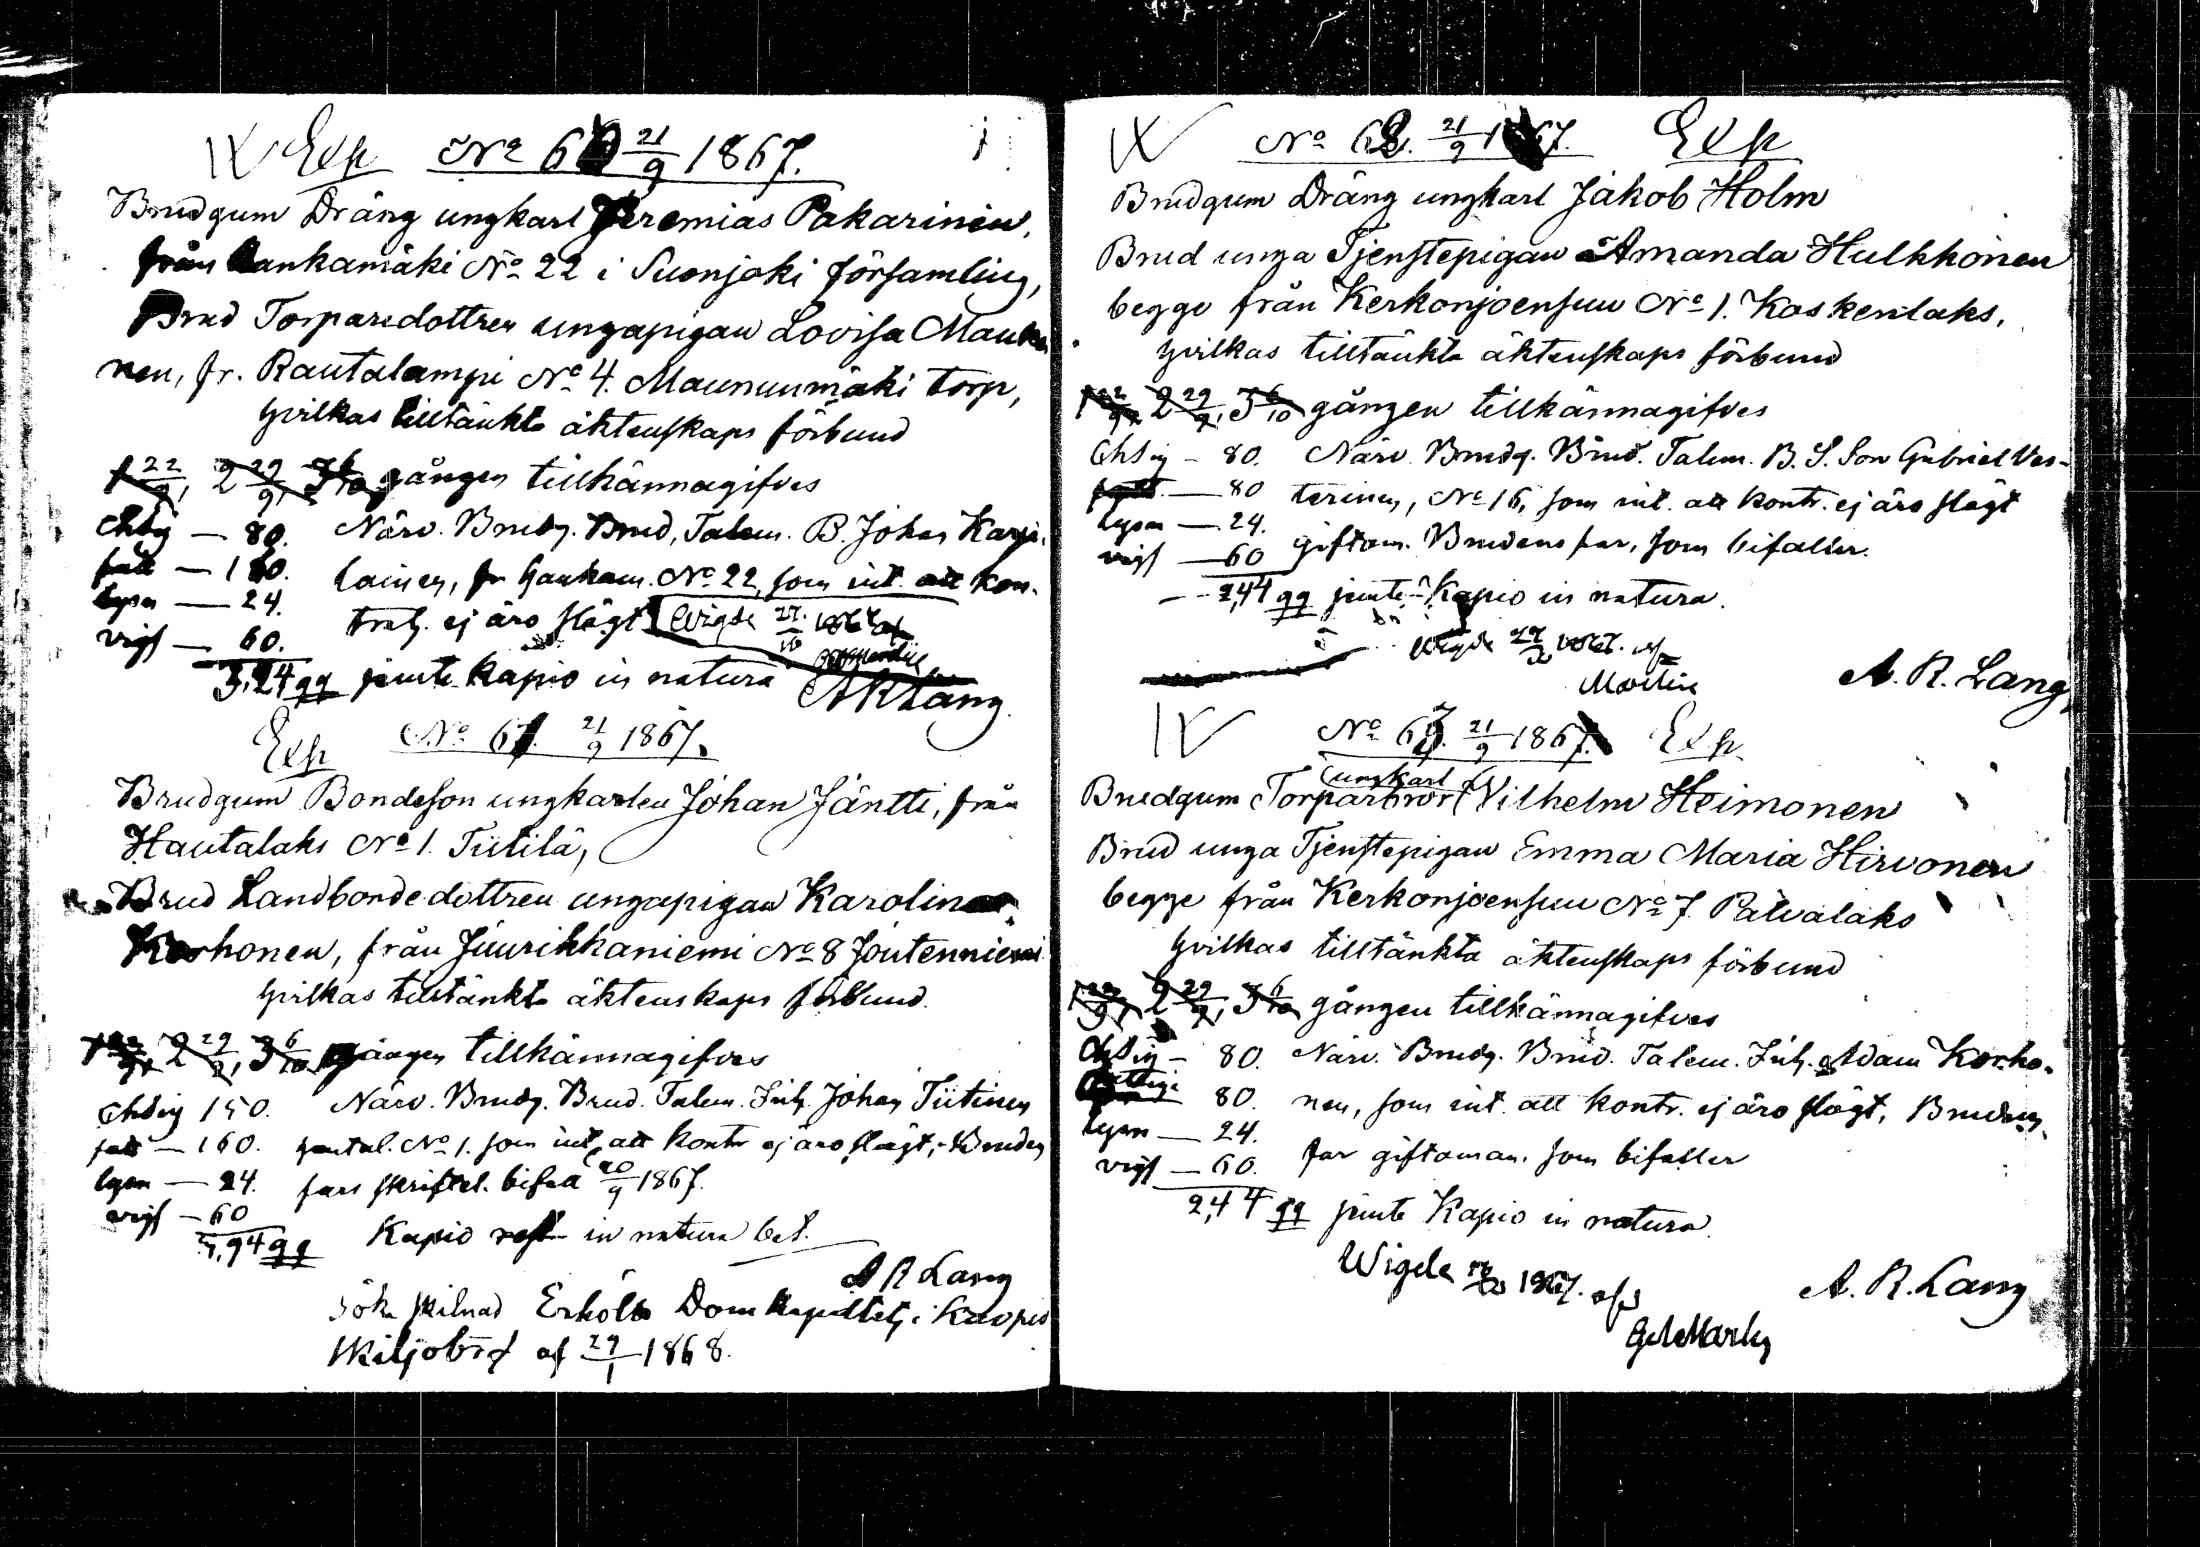 IV Exp No 60 21/9 1867.
Brudgum Dräng ungkarl Jeremias Pakarinen,
från Hankamäki No 22 i Suonjoki församling,
Brud Torparedottren ungapigan Lovisa Manki
nen, fr. Rautalampi No 4. Maununmäki torp,
hvilkas tilltänkta äktenskaps förbund
1 22/9, 2 29/9, 3 6/10 gången tillkännagifves
Chsig — 80. Närv. Brudg. Brud, Talem. B. Johan Karja-
fatt — 160. lainen, fr Hankam. No 22, som int. att kon-
lysn — 24. trah. ej äro slägt Vigde 27/10 1867 af
vigs — 60.
3,24 qq jemte kapio in natura
A R Lang
Exp No 61. 21/9 1867.
Brudgum Bondeson ungkarlen Johan Jäntti, från
Hautalaks No 1. Tiitilä,
Brud Landbonde dottren ungapigan Karolina
Korhonen, från Juurikkaniemi No 8 Joutenniemi
hvilkas tilltänkta äktenskaps förbund.
1 22/9, 2 29/9, 3 6/10 gången tillkännagifves
Chsig 150. Närv. Brudg. Brud. Talem. Inh. Johan Tiitinen
fatt — 160. hautal. No 1. som int, att kontr ej äro slägt, Bruden
lysn — 24. fars skriftel. bifall 20/9 1867.
vigs — 60
Kapio in natura bet.
A R Lang
Söka skilnad Erhölto Domkapitlet i Kuopio
skiljobref af 29/1 1868.
IV No 62. 21/9 1867. Exp
Brudgum Dräng ungkarl Jakob Holm
Brud unga Tjenstepigan Amanda Hulkkonen
begge från Kerkonjoensuu No 1. Koskenlaks,
hvilkas tilltänkta äktenskaps förbund
1 22/9, 2 29/9, 3 6/10 gången tillkännagifves
Chsig — 80. Närv. Brudg. Brud. Talem. B. S. Son Gabriel Ves-
fatt — 80 terinen, No 16, som int. att kontr. ej äro slägt
lysn — 24. giftom. Brudens far, som bifaller.
vigs — 60
2,44 qq jemte Kapio in natura.
Vigde 27/10 1867. af
Martin
A. R. Lang
IV No 63. 21/9 1867. Exp
ungkarl
Brudgum Torparbror Vilhelm Heimonen
Brud unga Tjenstepigan Emma Maria Hirvonen
begge från Kerkonjoensuu No 7 Pätvälaks
hvilkas tilltänkta äktenskaps förbund
1 22/9, 2 29/9, 3 6/10 gången tillkännagifves
Chsig — 80. Närv. Brudg. Brud. Talem. Inh. Adam Korho-
80. nen, som int. att kontr. ej äro slägt, Brudens
lysn — 24. far giftoman, som bifaller
vigs — 60.
2,44 qq jemte Kapio in natura.
Wigde 1867. af
A. R. Lang